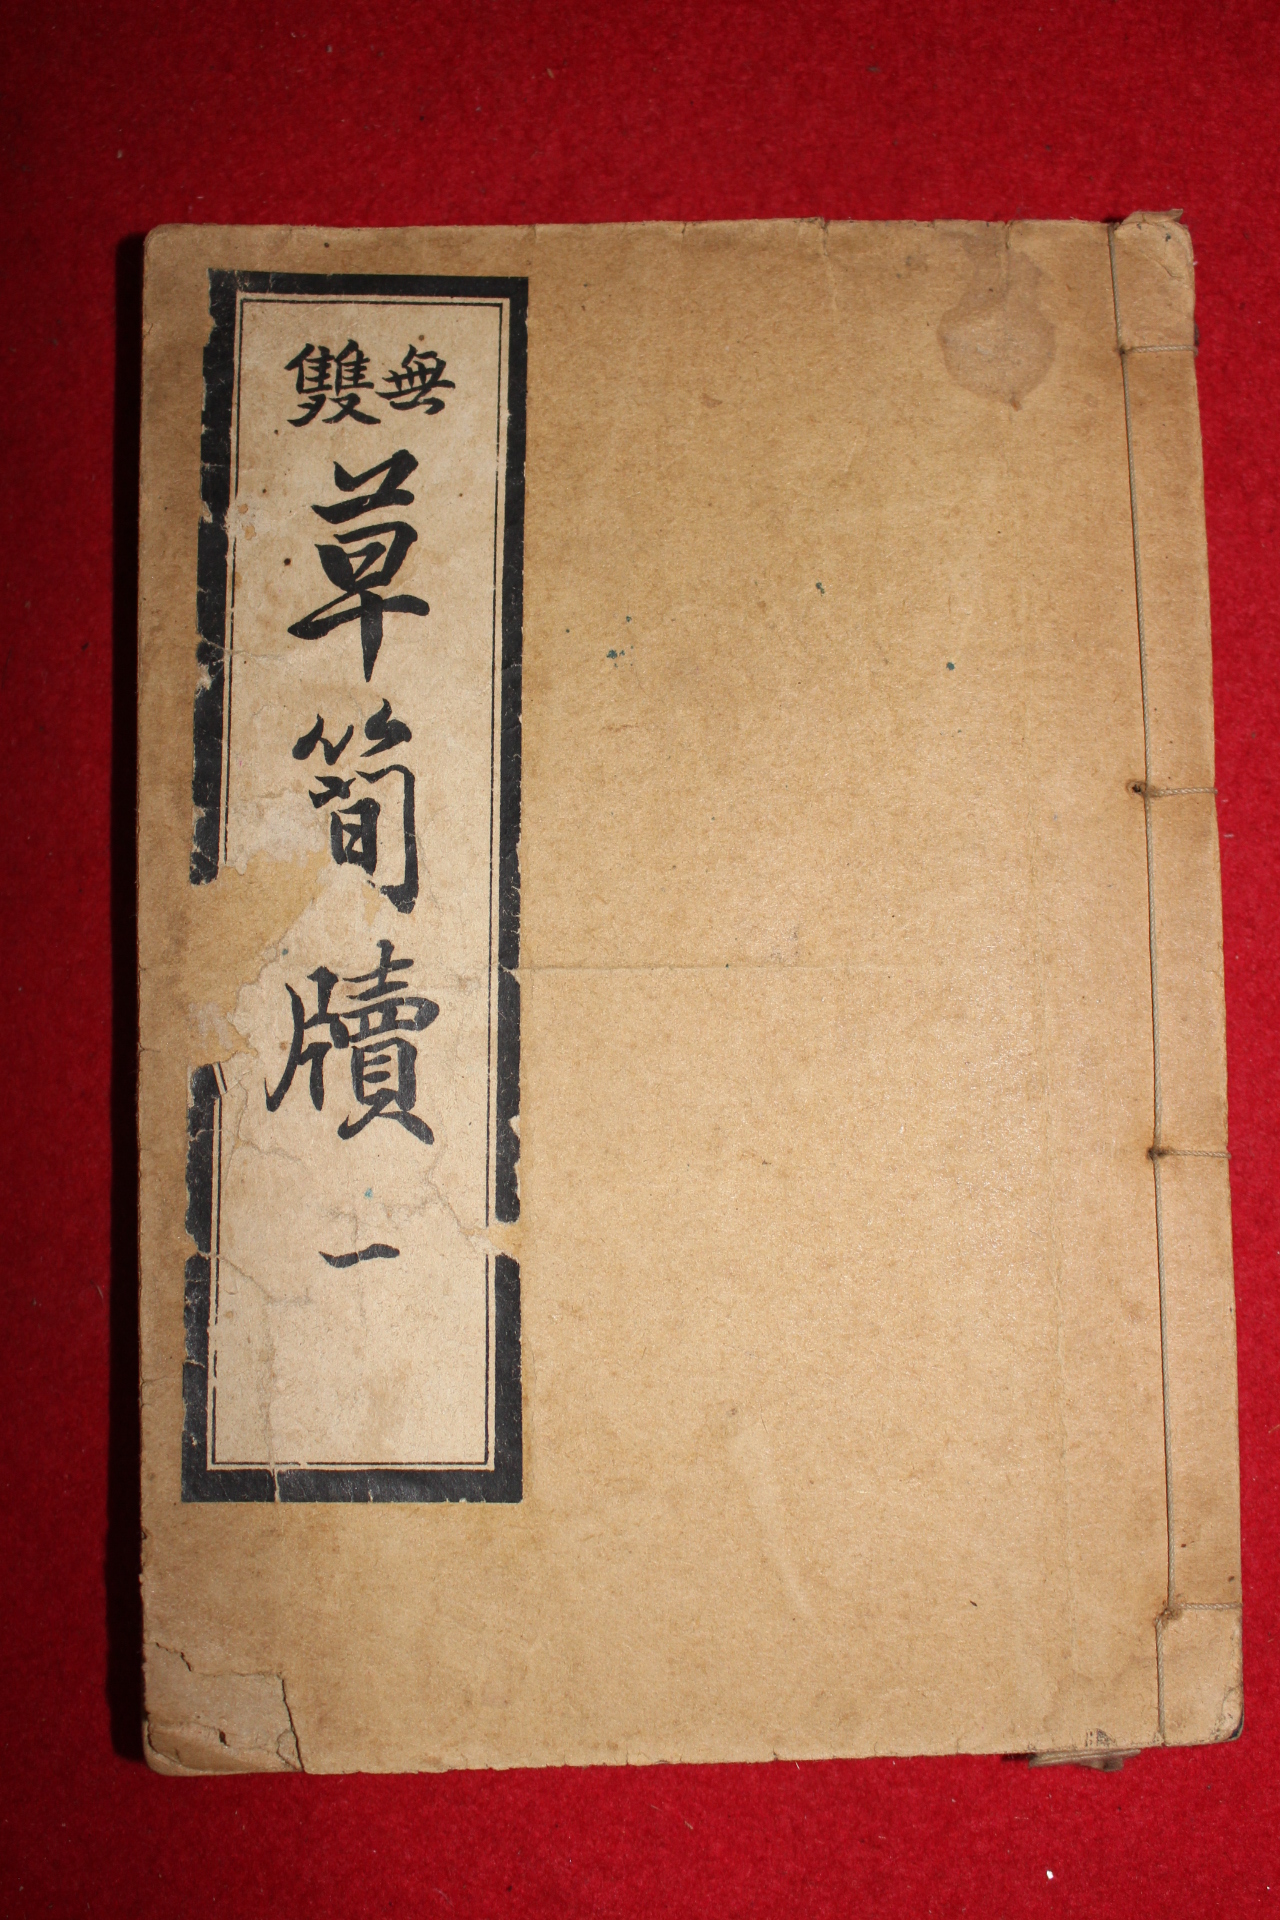 無雙
草簡牘
一